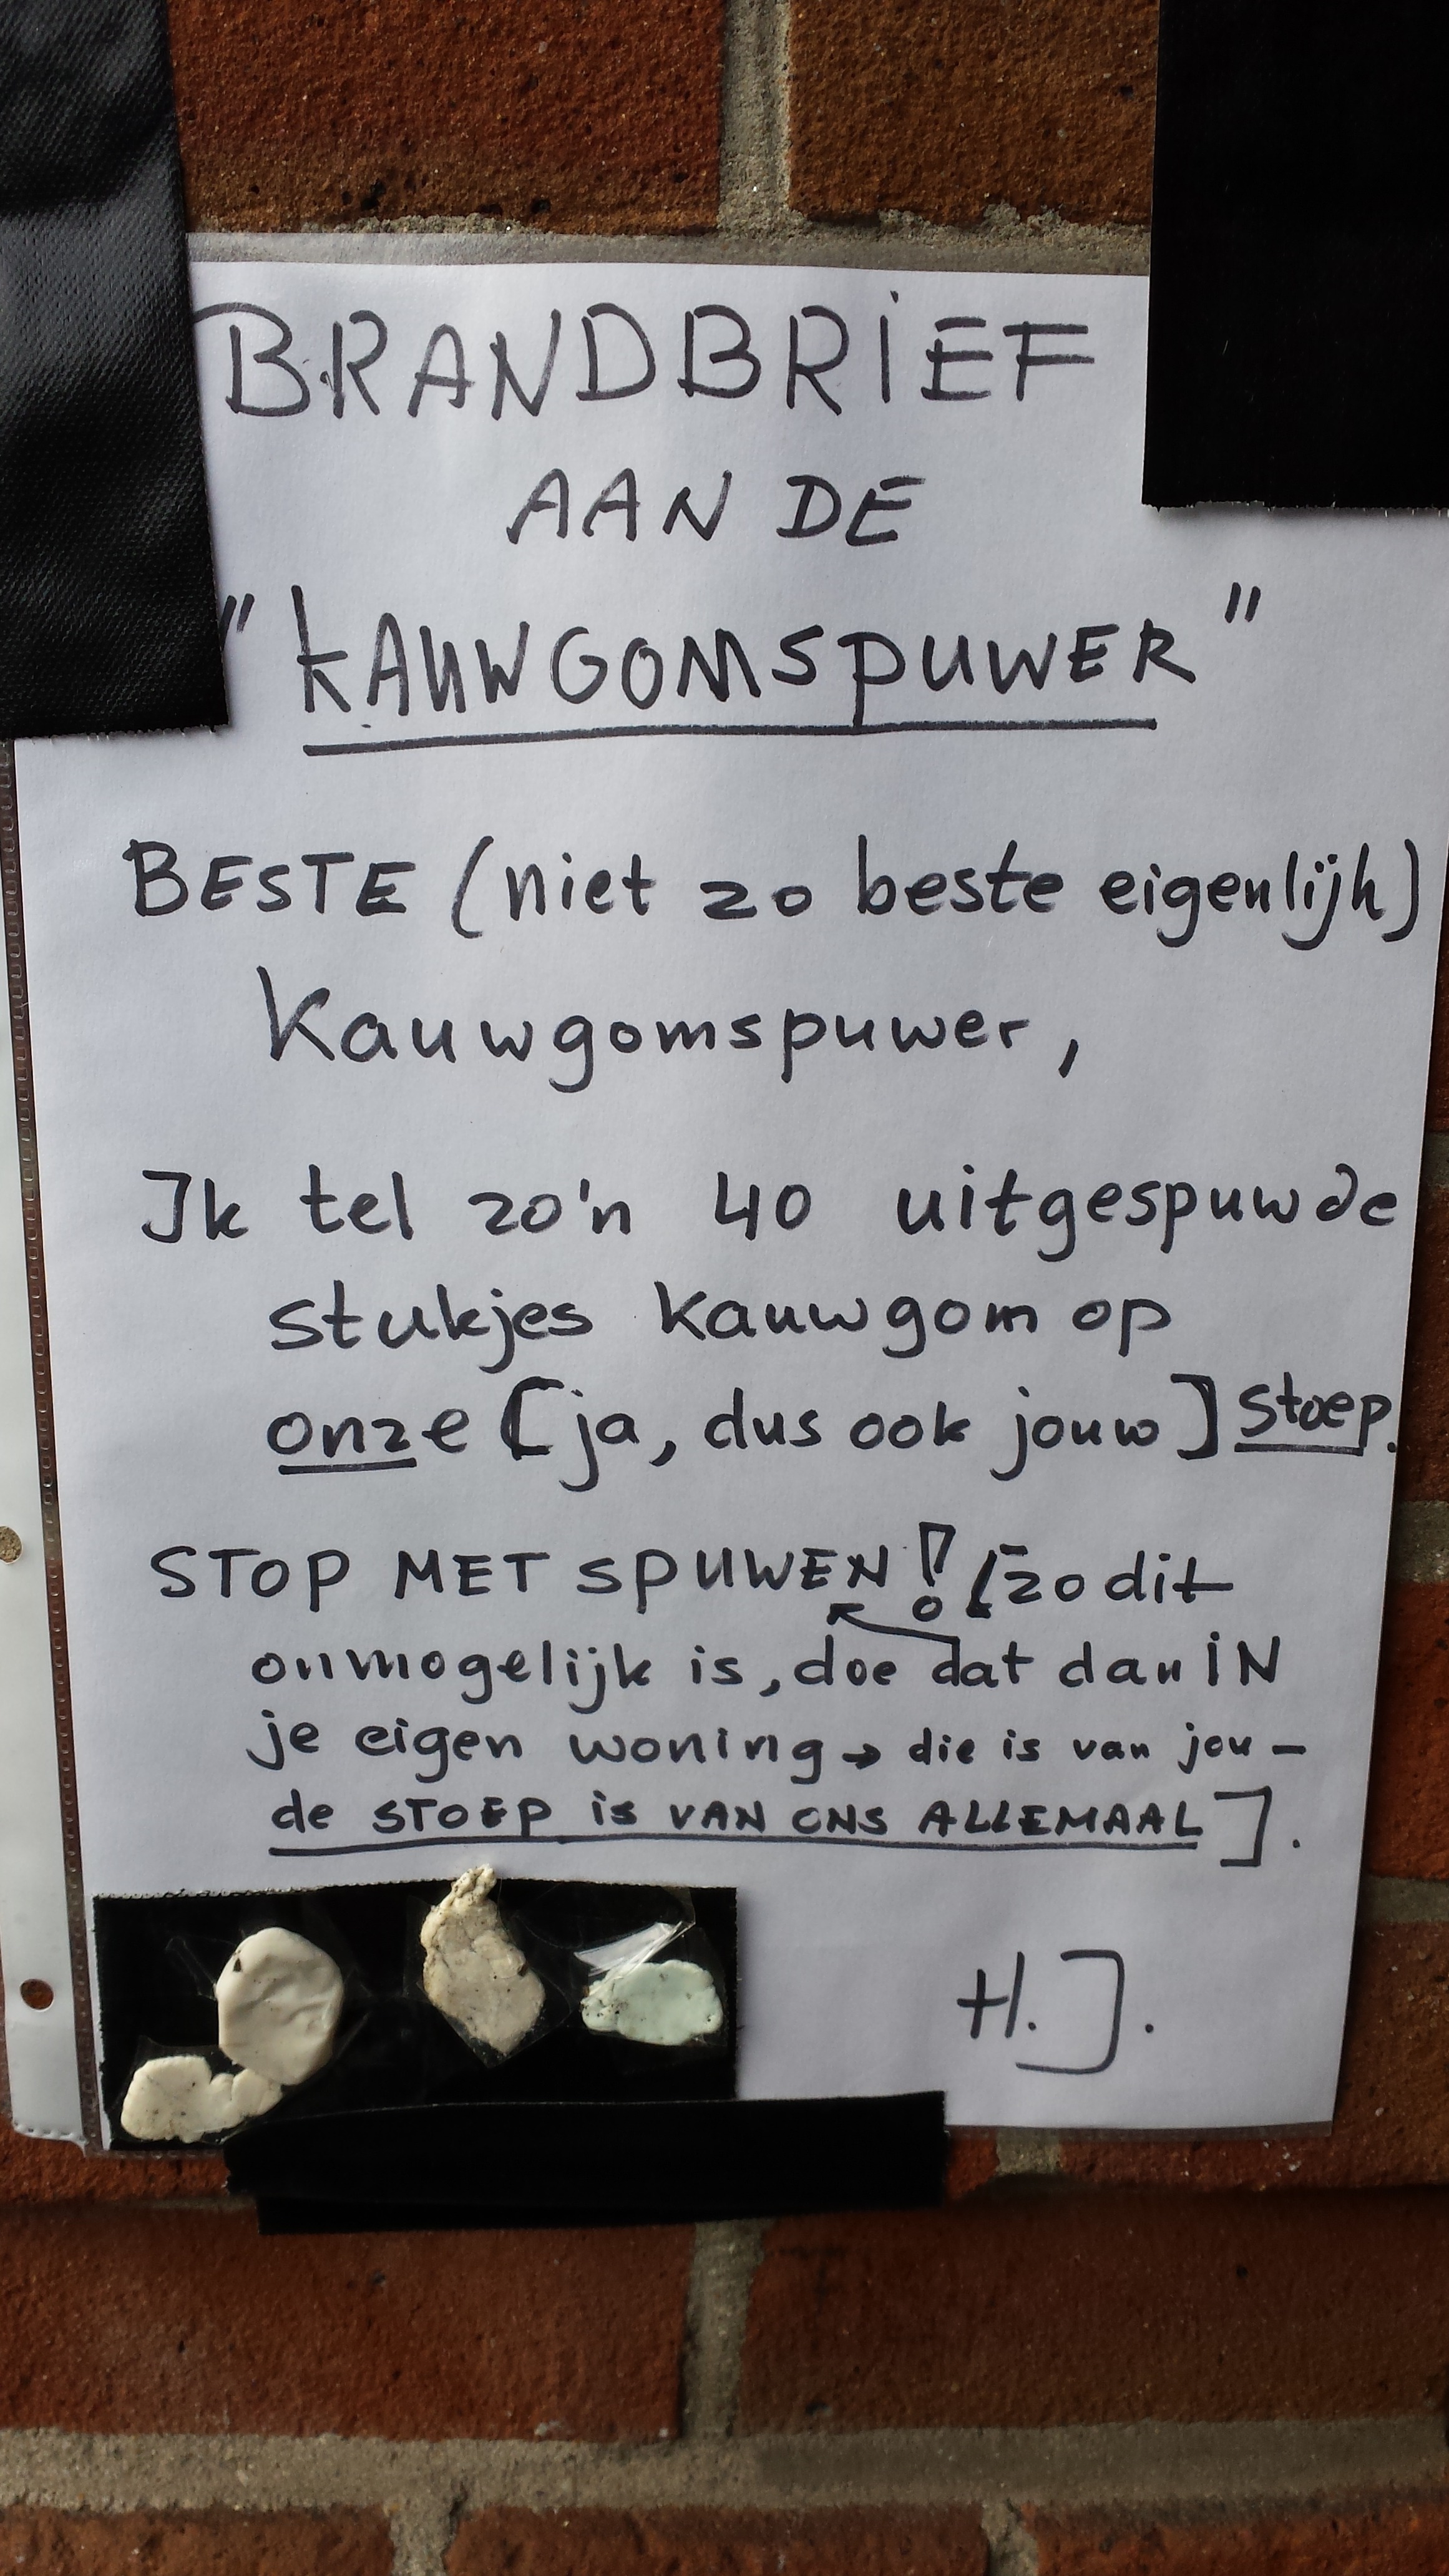 BRANDBRIEF
AAN DE
"KAUWGOMSPUWER"
BESTE (niet zo beste eigenlijk)
Kauwgomspuwer,
Ik tel zo'n 40 uitgespuwde
stukjes kauwgom op
onze [ja, dus ook jouw] stoep.
STOP MET SPUWEN! [zo dit
onmogelijk is, doe dat dan IN
je eigen woning → die is van jou -
de STOEP is VAN ONS ALLEMAAL].
H.J.